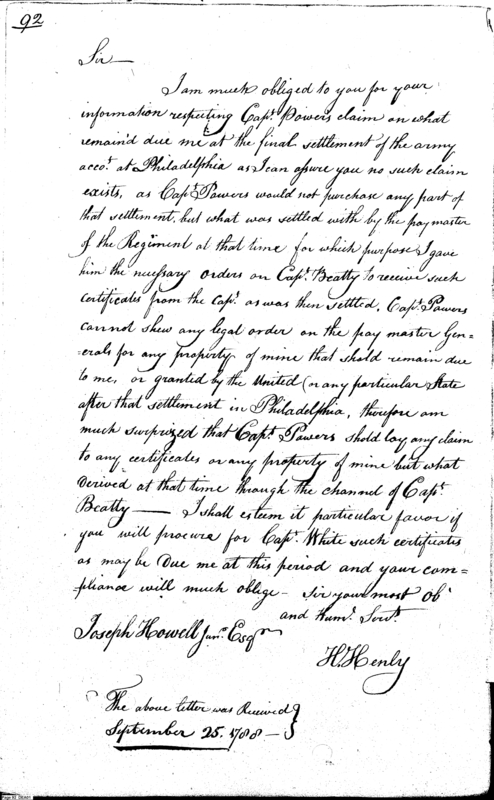 92
Sir —
I am much obliged to you for your
information respecting Capt. Powers claim on what
remain'd due me at the final settlement of the army
acco.t at Philadelphia as I can assure you no such claim
exists, as Capt. Powers would not purchase any part of
that settlement, but what was settled with by the paymaster
of the Regiment at that time for which purpose I gave
him the necessary orders on Capt. Beatty to receive such
certificates from the Capt. as was then settled, Capt. Powers
cannot shew any legal order on the pay master Gen=
=erals for any property of mine that shold remain due
to me, or granted by the United (or any particular State
after that settlement in Philadelphia, therefore am
much surprized that Capt. Powers shold lay any claim
to any certificates or any property of mine but what
Derived at that time through the channel of Capt.
Beatty — I shall esteem it particular favor if
you will procure for Capt. White such certificates
as may be Due me at this period and your com=
=pliance will much oblige — Sir your most ob.t
and Hum.l Serv.t
Joseph Howell Jun.r Esq.r
H. Henly
The above letter was Received
September 25. 1788 —